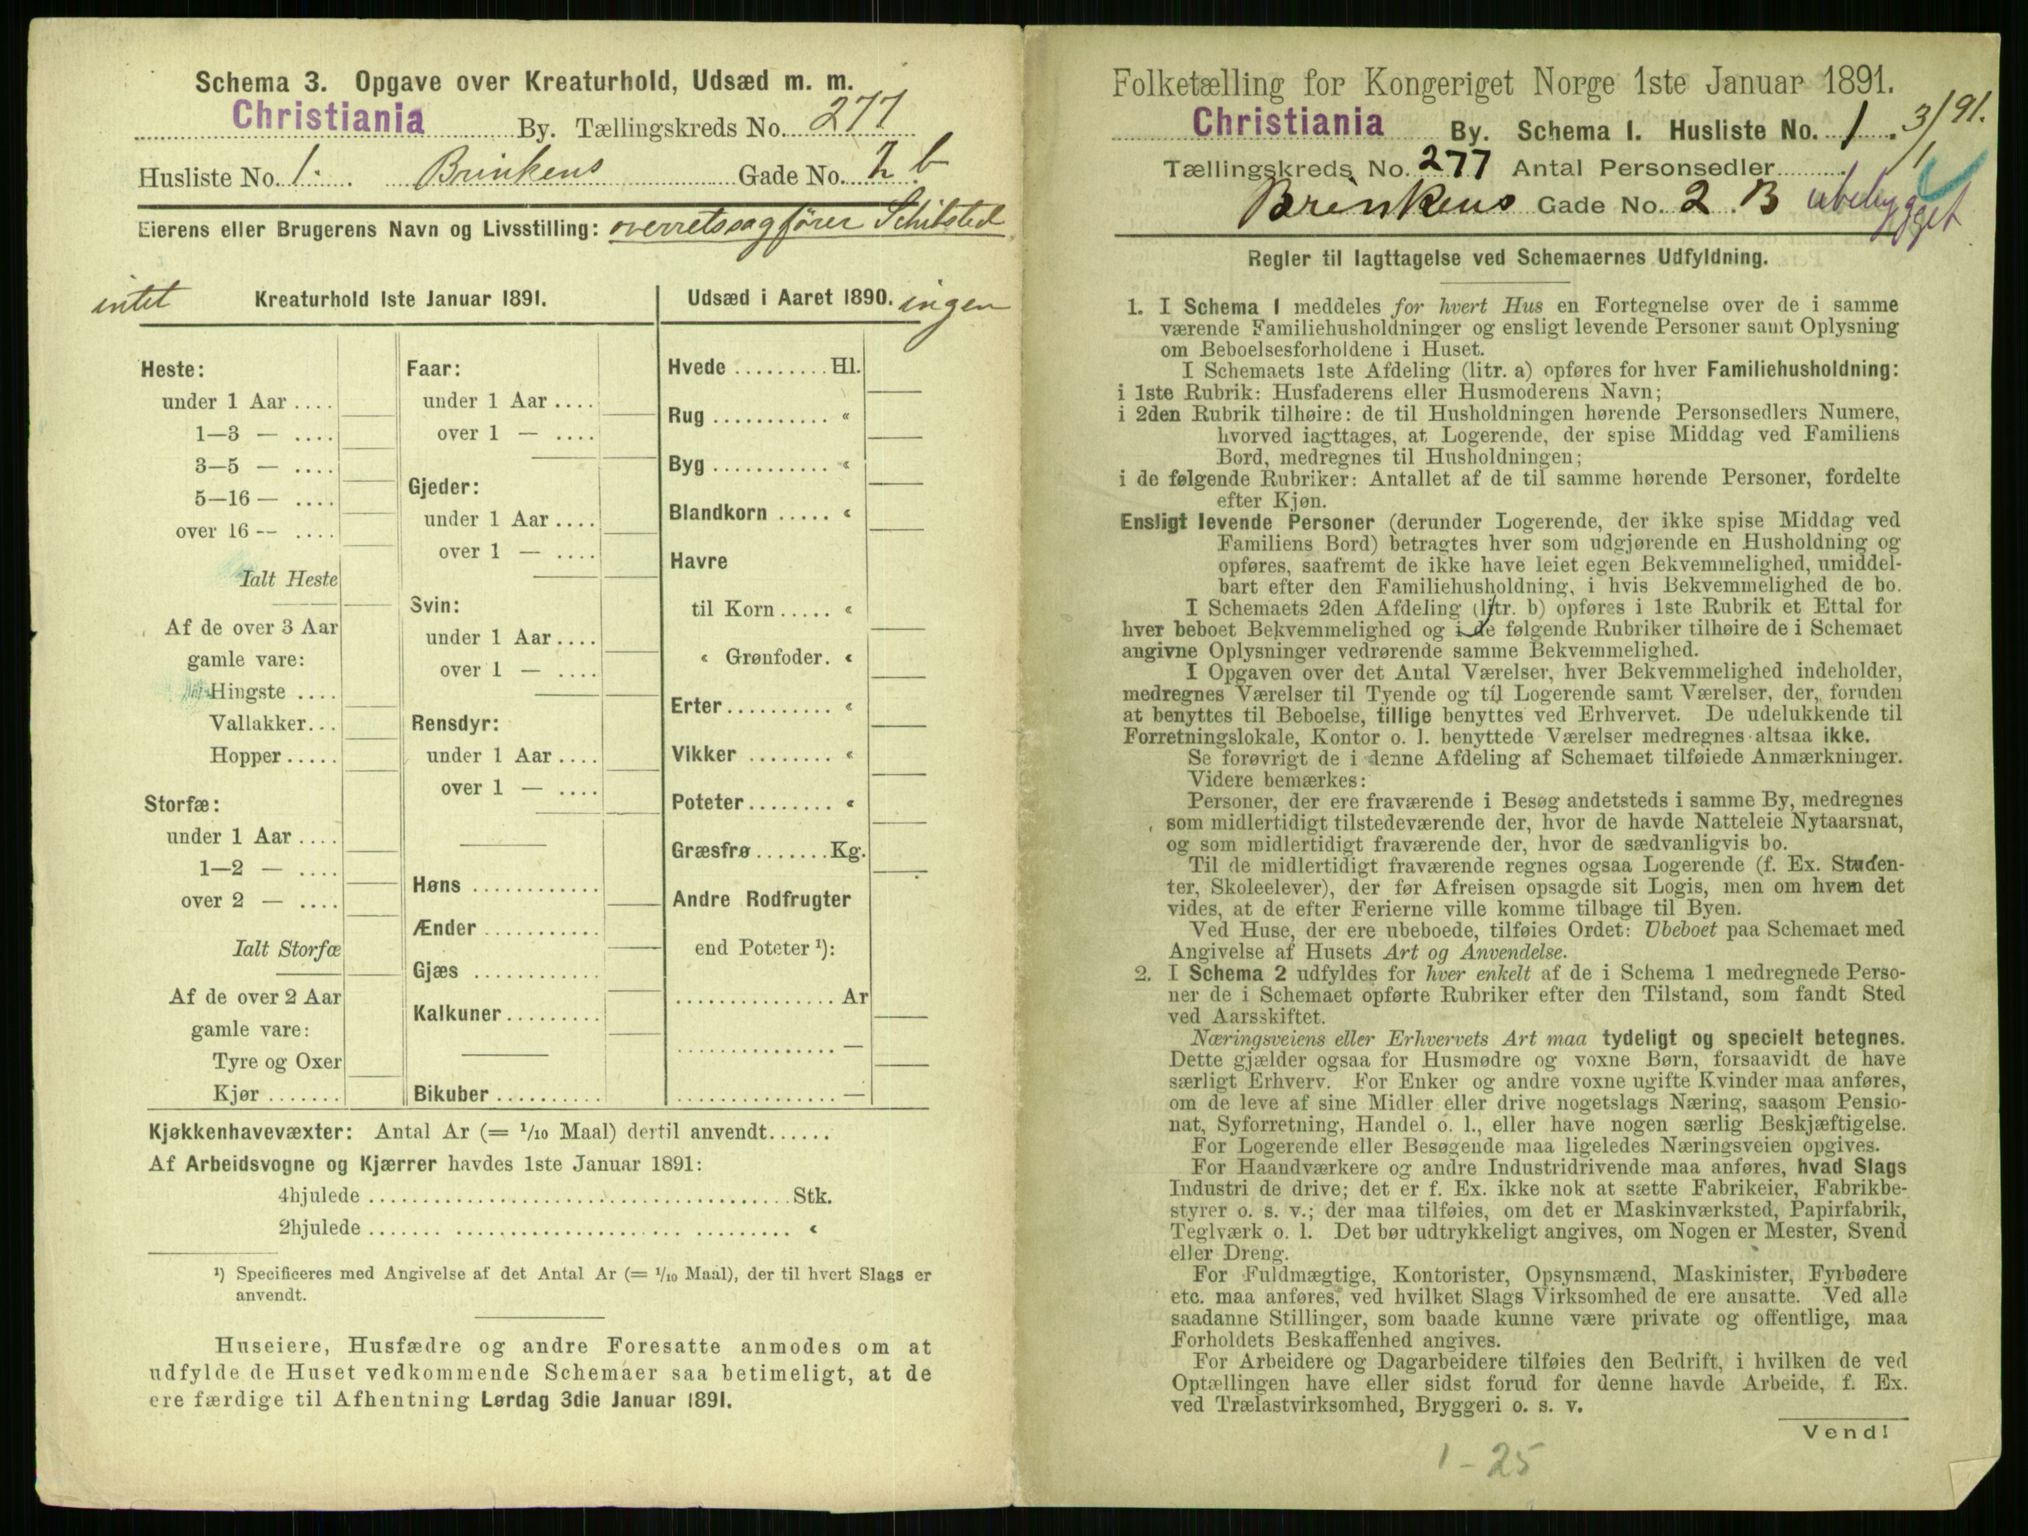 Schema 3. Opgave over Kreaturhold, Udsæd m. m.
Christiania By. Tællingskreds No. 277
Husliste No. 1. Brinkens Gade No. 2 b
Eierens eller Brugerens Navn og Livsstilling: overretssagfører Schibsted
intet Kreaturhold 1ste Januar 1891.
Heste:
under 1 Aar ....
1—3 — ....
3—5 — ....
5—16 — ....
over 16 — ....
Ialt Heste
Af de over 3 Aar
gamle vare:
Hingste ....
Vallakker...
Hopper.....
Storfæ:
under 1 Aar ....
1—2 — ....
over 2 — ....
Ialt Storfæ
Af de over 2 Aar
gamle vare:
Tyre og Oxer
Kjør .......
Faar:
under 1 Aar ....
over 1 — ....
Gjeder:
under 1 Aar ....
over 1 — ....
Svin:
under 1 Aar ....
over 1 — ....
Rensdyr:
under 1 Aar ....
over 1 — ....
Høns ............
Ænder ...........
Gjæs ............
Kalkuner.........
Bikuber ..........
Udsæd i Aaret 1890. ingen
Hvede ......... Hl.
Rug ........... «
Byg ........... «
Blandkorn ..... «
Havre
til Korn ..... «
« Grønfoder. «
Erter.......... «
Vikker ........ «
Poteter........ «
Græsfrø ....... Kg.
Andre Rodfrugter
end Poteter ¹):
............... Ar
............... —
............... —
Kjøkkenhavevæxter: Antal Ar (= 1/10 Maal) dertil anvendt......
Af Arbeidsvogne og Kjærrer havdes 1ste Januar 1891:
4hjulede ........................................ Stk.
2hjulede ........................................ «
¹) Specificeres med Angivelse af det Antal Ar (= 1/10 Maal), der til hvert Slags er
anvendt.
Huseiere, Husfædre og andre Foresatte anmodes om at
udfylde de Huset vedkommende Schemaer saa betimeligt, at de
ere færdige til Afhentning Lørdag 3die Januar 1891.
Folketælling for Kongeriget Norge 1ste Januar 1891.
Christiania By. Schema I. Husliste No. 1. 3/1 91.
Tællingskreds No. 277 Antal Personsedler..........
Brinkens Gade No. 2 B ubebygget
Regler til Iagttagelse ved Schemaernes Udfyldning.
1. I Schema 1 meddeles for hvert Hus en Fortegnelse over de i samme
værende Familiehusholdninger og ensligt levende Personer samt Oplysning
om Beboelsesforholdene i Huset.
I Schemaets 1ste Afdeling (litr. a) opføres for hver Familiehusholdning:
i 1ste Rubrik: Husfaderens eller Husmoderens Navn;
i 2den Rubrik tilhøire: de til Husholdningen hørende Personsedlers Numere,
hvorved iagttages, at Logerende, der spise Middag ved Familiens
Bord, medregnes til Husholdningen;
i de følgende Rubriker: Antallet af de til samme hørende Personer, fordelte
efter Kjøn.
Ensligt levende Personer (derunder Logerende, der ikke spise Middag ved
Familiens Bord) betragtes hver som udgjørende en Husholdning og
opføres, saafremt de ikke have leiet egen Bekvemmelighed, umiddel-
bart efter den Familiehusholdning, i hvis Bekvemmelighed de bo.
I Schemaets 2den Afdeling (litr. b) opføres i 1ste Rubrik et Ettal for
hver beboet Bekvemmelighed og i de følgende Rubriker tilhøire de i Schemaet
angivne Oplysninger vedrørende samme Bekvemmelighed.
I Opgaven over det Antal Værelser, hver Bekvemmelighed indeholder,
medregnes Værelser til Tyende og til Logerende samt Værelser, der, foruden
at benyttes til Beboelse, tillige benyttes ved Erhvervet. De udelukkende til
Forretningslokale, Kontor o. l. benyttede Værelser medregnes altsaa ikke.
Se forøvrigt de i denne Afdeling af Schemaet tilføiede Anmærkninger.
Videre bemærkes:
Personer, der ere fraværende i Besøg andetsteds i samme By, medregnes
som midlertidigt tilstedeværende der, hvor de havde Natteleie Nytaarsnat,
og som midlertidigt fraværende der, hvor de sædvanligvis bo.
Til de midlertidigt fraværende regnes ogsaa Logerende (f. Ex. Studen-
ter, Skoleelever), der før Afreisen opsagde sit Logis, men om hvem det
vides, at de efter Ferierne ville komme tilbage til Byen.
Ved Huse, der ere ubeboede, tilføies Ordet: Ubeboet paa Schemaet med
Angivelse af Husets Art og Anvendelse.
2. I Schema 2 udfyldes for hver enkelt af de i Schema 1 medregnede Perso-
ner de i Schemaet opførte Rubriker efter den Tilstand, som fandt Sted
ved Aarsskiftet.
Næringsveiens eller Erhvervets Art maa tydeligt og specielt betegnes.
Dette gjælder ogsaa for Husmødre og voxne Børn, forsaavidt de have
særligt Erhverv. For Enker og andre voxne ugifte Kvinder maa anføres,
om de leve af sine Midler eller drive nogetslags Næring, saasom Pensio-
nat, Syforretning, Handel o. l., eller have nogen særlig Beskjæftigelse.
For Logerende eller Besøgende maa ligeledes Næringsveien opgives.
For Haandværkere og andre Industridrivende maa anføres, hvad Slags
Industri de drive; det er f. Ex. ikke nok at sætte Fabrikeier, Fabrikbe-
styrer o. s. v.; der maa tilføies, om det er Maskinværksted, Papirfabrik,
Teglværk o. l. Det bør udtrykkeligt angives, om Nogen er Mester, Svend
eller Dreng.
For Fuldmægtige, Kontorister, Opsynsmænd, Maskinister, Fyrbødere
etc. maa anføres, ved hvilket Slags Virksomhed de ere ansatte. Ved alle
saadanne Stillinger, som baade kunne være private og offentlige, maa
Forholdets Beskaffenhed angives.
For Arbeidere og Dagarbeidere tilføies den Bedrift, i hvilken de ved
Optællingen have eller sidst forud for denne havde Arbeide, f. Ex.
ved Trælastvirksomhed, Bryggeri o. s. v.
Vend!
1-25